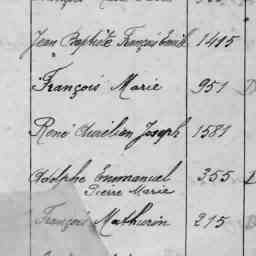 Jean Baptiste François Emile 1415
François Marie 951
René Aurélien Joseph 1581
Adolphe Emmanuel 355
Pierre Marie
François Mathurin 215